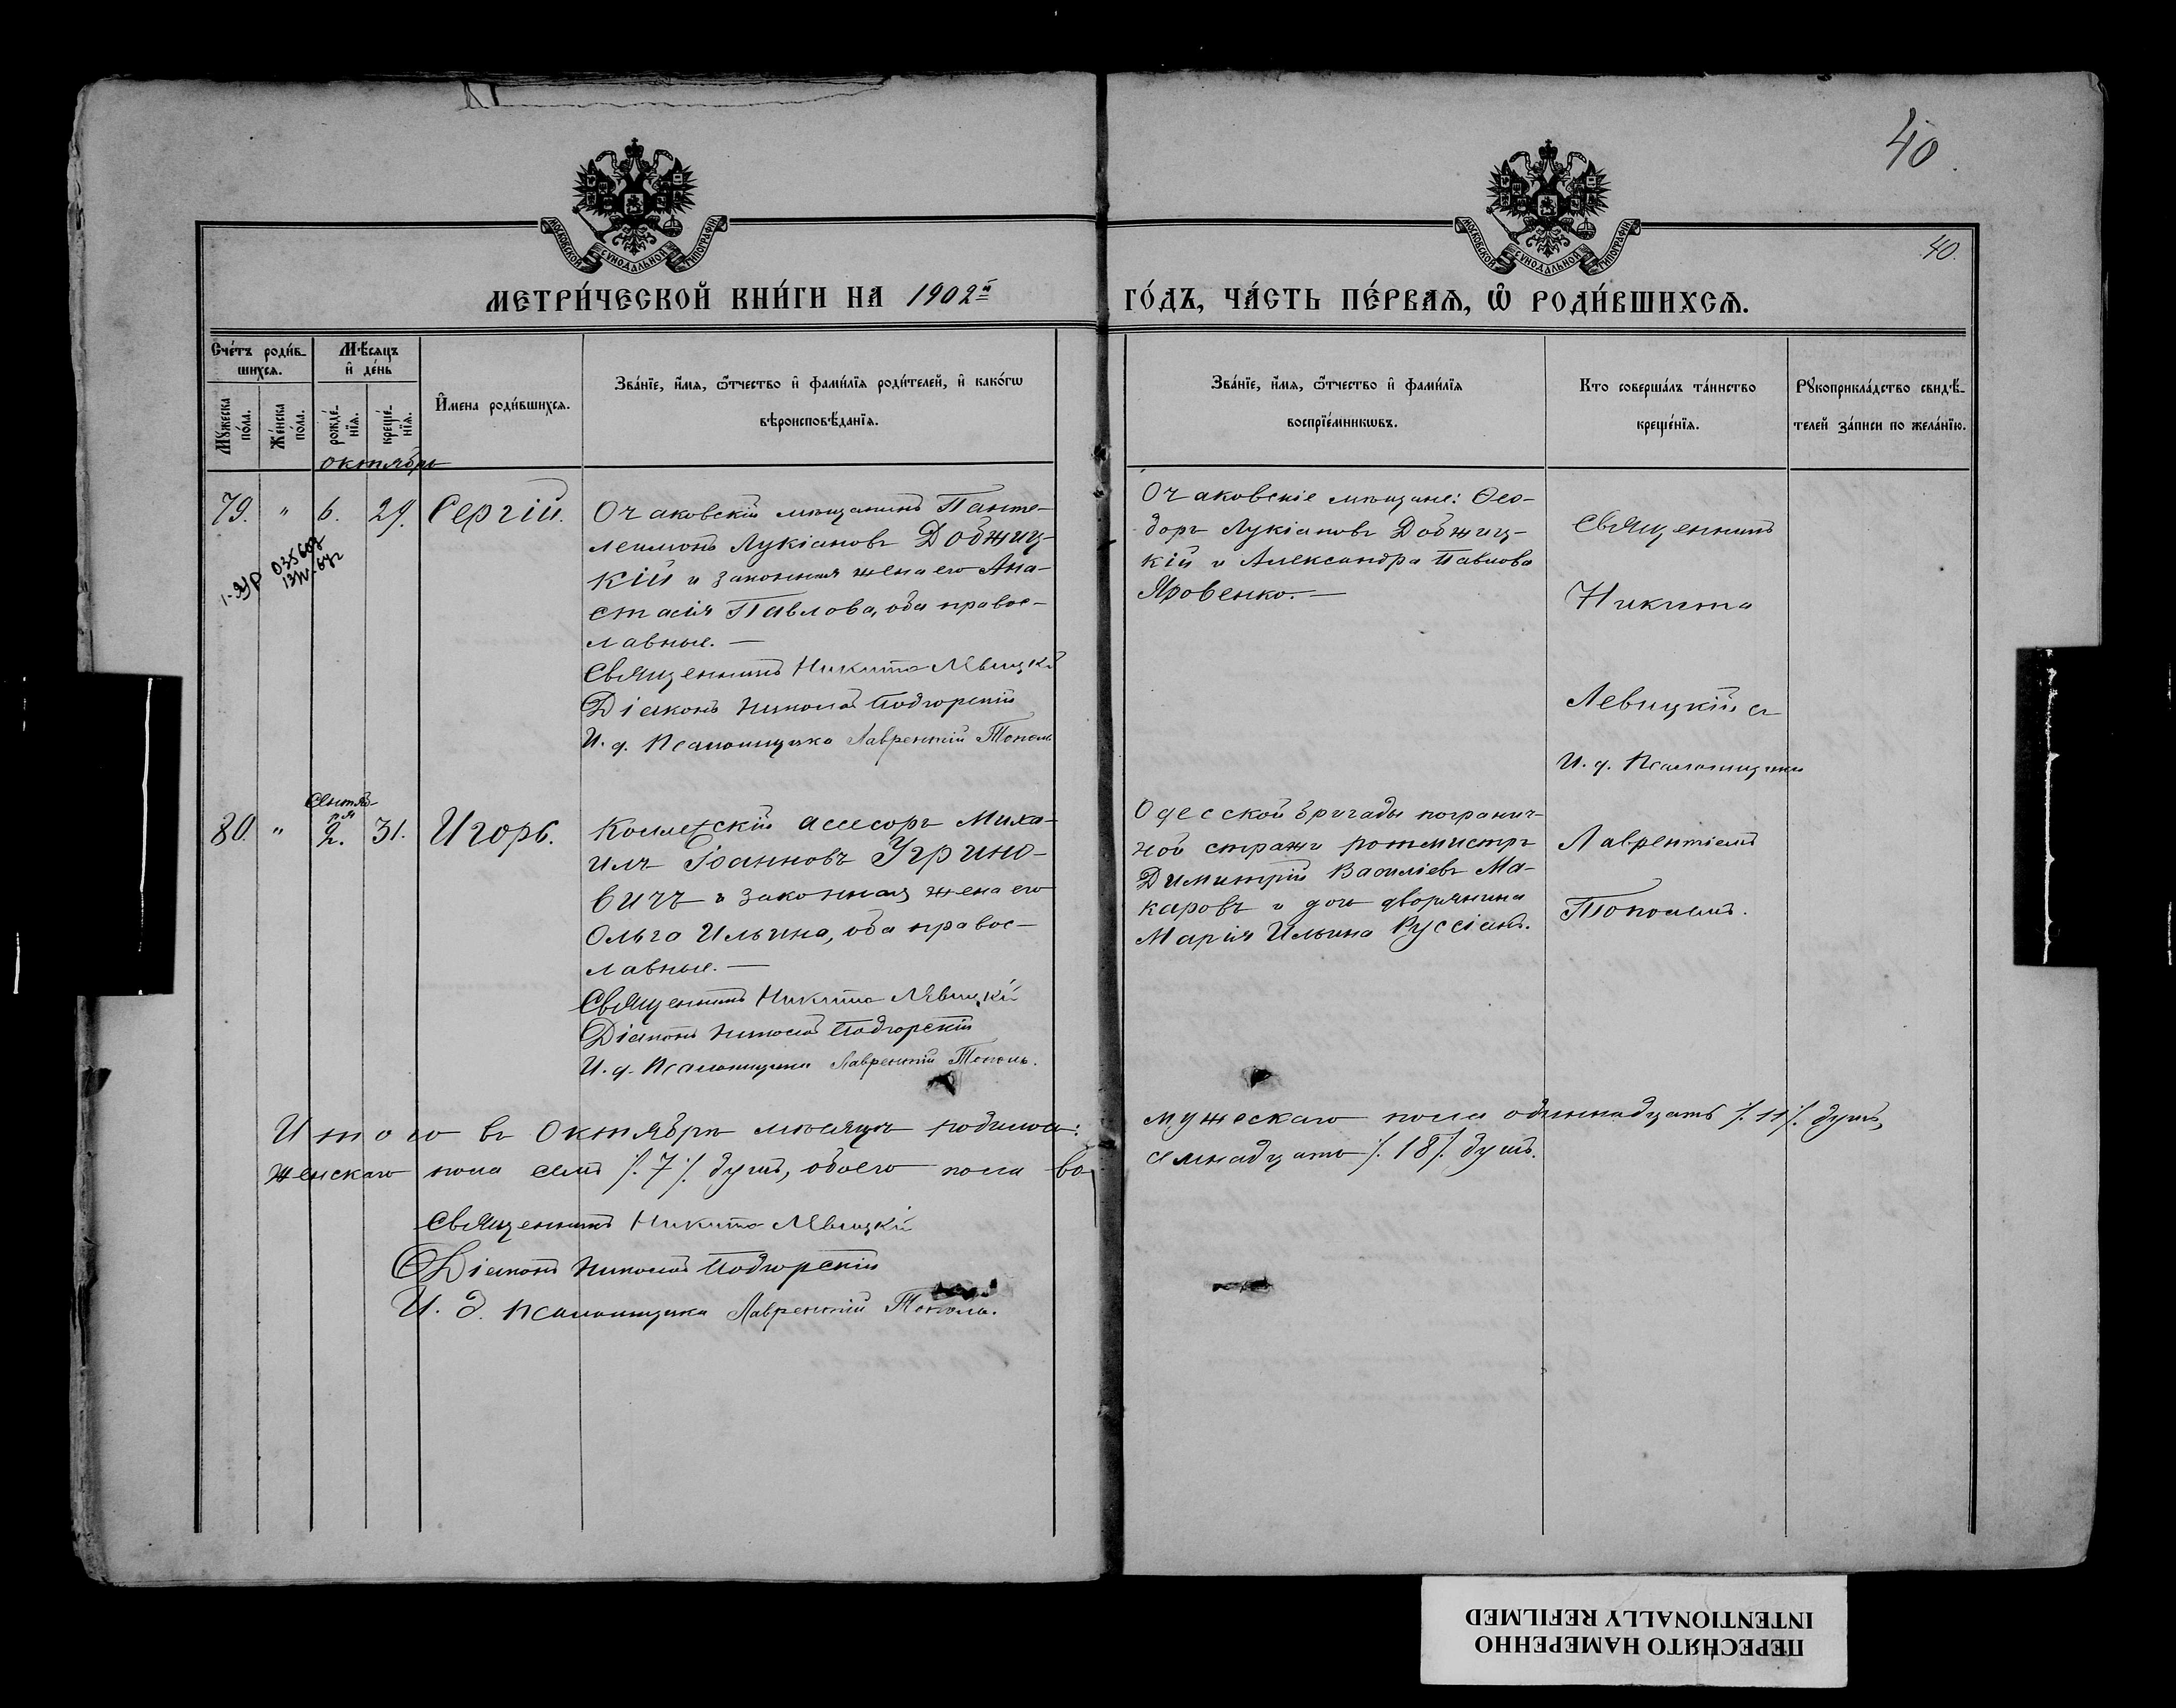 40
40.
МОСКОВСКОЙ СУНОДАЛЬНОЙ ТИПОГРАФІИ
МОСКОВСКОЙ СУНОДАЛЬНОЙ ТИПОГРАФІИ
МЕТРИ́ЧЕСКОЙ КНИ́ГИ НА 1902й
ГО́ДЪ, ЧА́СТЬ ПЕ́РВАѦ, Ѡ҃ РОДИ́ВШИХСѦ.
Сче́тъ роди́в-
шихсѧ.
Мѣ́сѧцъ
и҆ де́нь
Мꙋ́жеска
по́ла.
Же́нска
по́ла.
рожде́-
нїѧ.
креще́-
нїѧ.
И҆́мена роди́вшихсѧ.
Зва́нїе, и҆́мѧ, ѻ҆́тчество и҆ фами́лїѧ роди́телей, и҆ како́гѡ
вѣроисповѣ́данїѧ.
Зва́нїе, и҆́мѧ, ѻ҆́тчество и҆ фами́лїѧ
воспрїе́мникѡвъ.
Кто соверша́лъ та́инство
креще́нїѧ.
Рꙋкоприкла́дство свидѣ́-
телей за́писи по жела́нїю.
октябрь
79. " 6. 29. Сергій.
Очаковскій мѣщанинъ Панте-
леимонъ Лукіановъ Добжиц-
кій и законная жена его Ана-
стасія Павлова, оба правос-
лавные. —
Священникъ Никита Левицкій
Діаконъ Николай Подгорскій
И. д. Псаломщика Лаврентій Тополь
Очаковскіе мѣщане: Ѳео-
доръ Лукіановъ Добжиц-
кій и Александра Павлова
Яровенко. —
Священникъ
Никита
Левицкій съ
И. д. Псаломщика
Лаврентіемъ
Тополемъ.
Сентяб-
ря
80. " 2. 31. Игорь.
Коллежскій ассесоръ Миха-
илъ Іоанновъ Угрино-
вичъ и законная жена его
Ольга Ильина, оба правос-
лавные. —
Священникъ Никита Левицкій
Діаконъ Николай Подгорскій
И. д. Псаломщика Лаврентій Тополь.
Одесской бригады погранич-
ной стражи ротмистръ
Димитрій Василіевъ Ма-
каровъ и дочь дворянина
Марія Ильина Руссіанъ.
Итого въ Октябрѣ мѣсяцѣ родилось: мужескаго пола одиннадцать ∕. 11 ∕. душъ,
женскаго пола семь ∕. 7 ∕. душъ, обоего пола во- семнадцать ∕. 18 ∕. душъ.
Священникъ Никита Левицкій
Діаконъ Николай Подгорскій
И. д. псаломщика Лаврентій Тополь.
ПЕРЕСНЯТО НАМЕРЕННО
INTENTIONALLY REFILMED